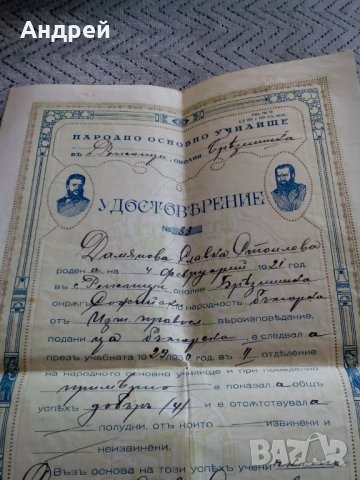 Андрей
НАРОДНО ОСНОВНО УЧИЛИЩЕ
въ с. околия Брѣзнишка
УДОСТОВѢРЕНИЕ
№ 31
Дамянова Славка Стоилова
родена на 4 февруарий 1921 год
въ с. околия Брѣзнишка
окрѫгъ Софийски по народность българка
отъ Изт. правосл. вѣроизповѣдание,
подани ца българска е следвала
презъ учебната 1929/1930 год въ II отдѣление
на народното основно училище и при поведение
примѣрно е показала общъ
успѣхъ добъръ (4) и е отсѫтствувала
полудни, отъ които извинени и
неизвинени.
Възъ основа на този успѣхъ учени
bazar.bg